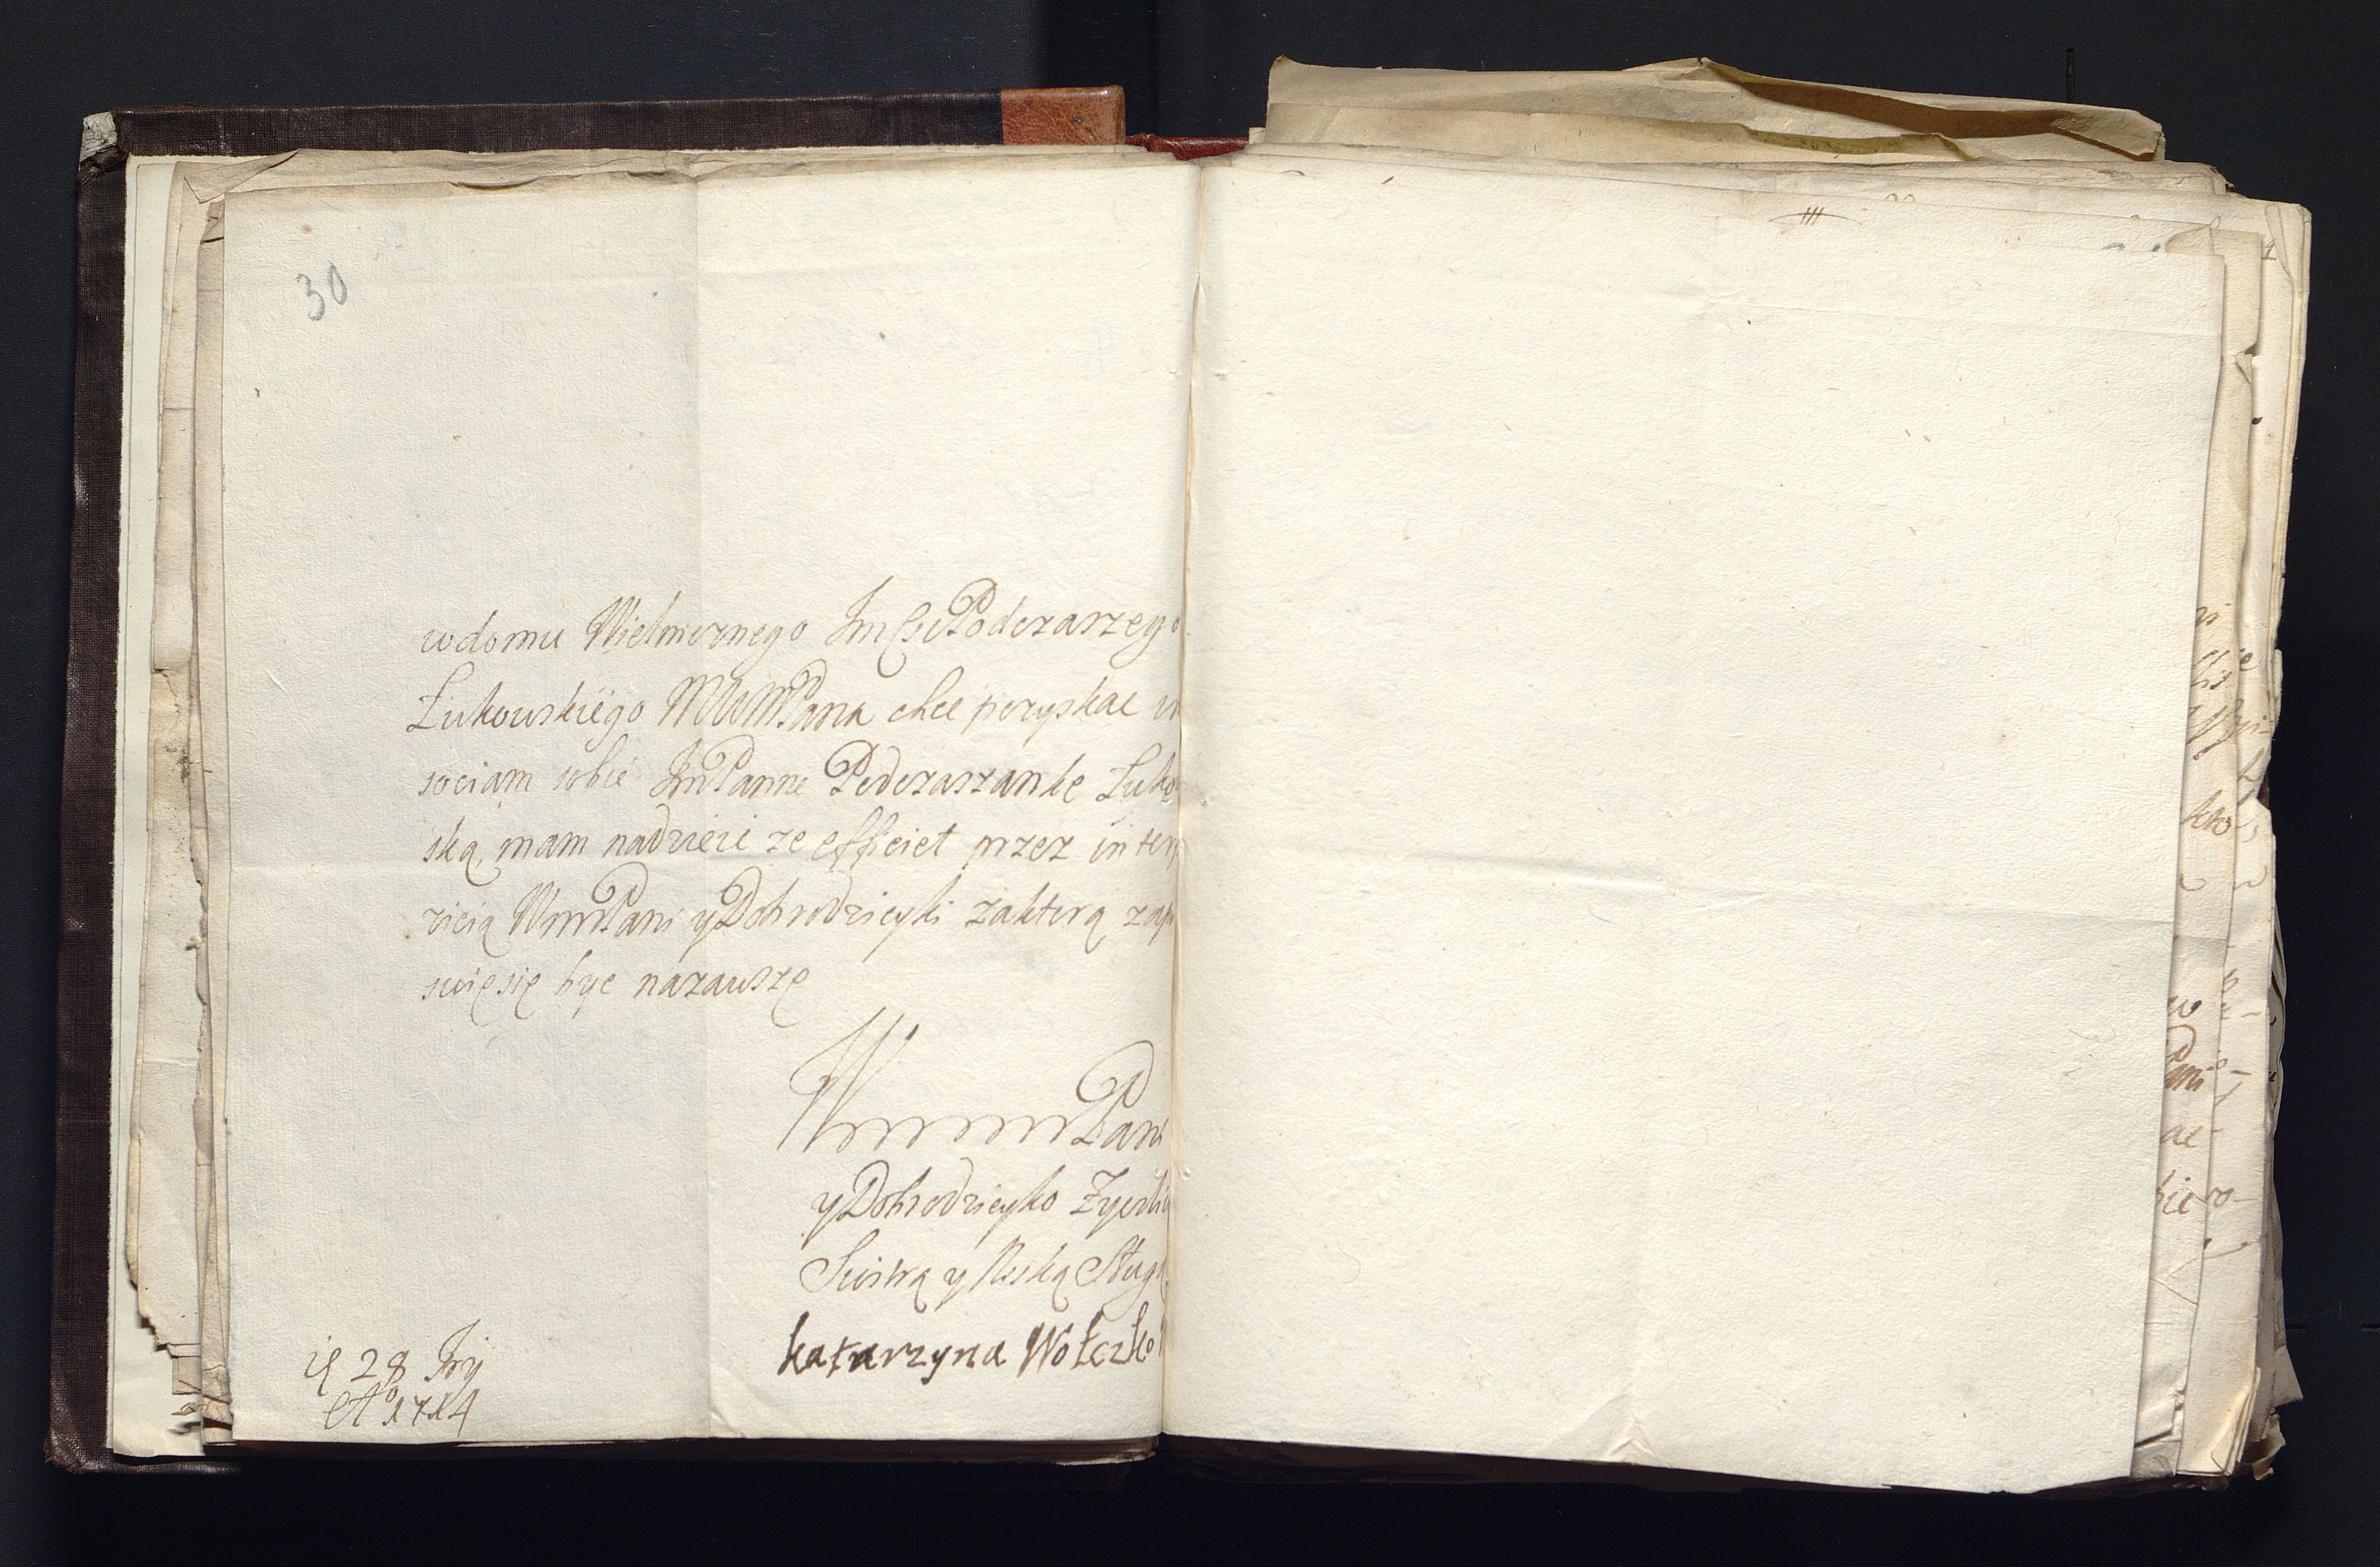 30
wdomu Wielmoznego Jm Podczaszego
Łukowskiego MWMPana chce pozyskac in
sociam sobie JmPanne Podczaszanke Łuko
ską, mam nadzieie ze efficiet przez inter
zicią WmmPani yDobrodzieyki zaktorą zap
suię się byc nazawsze
WmmPani
yDobrodzieyko Zyczli
Siostrą y Niską Sług
katarzyna Wołczko
28
Ao 1714